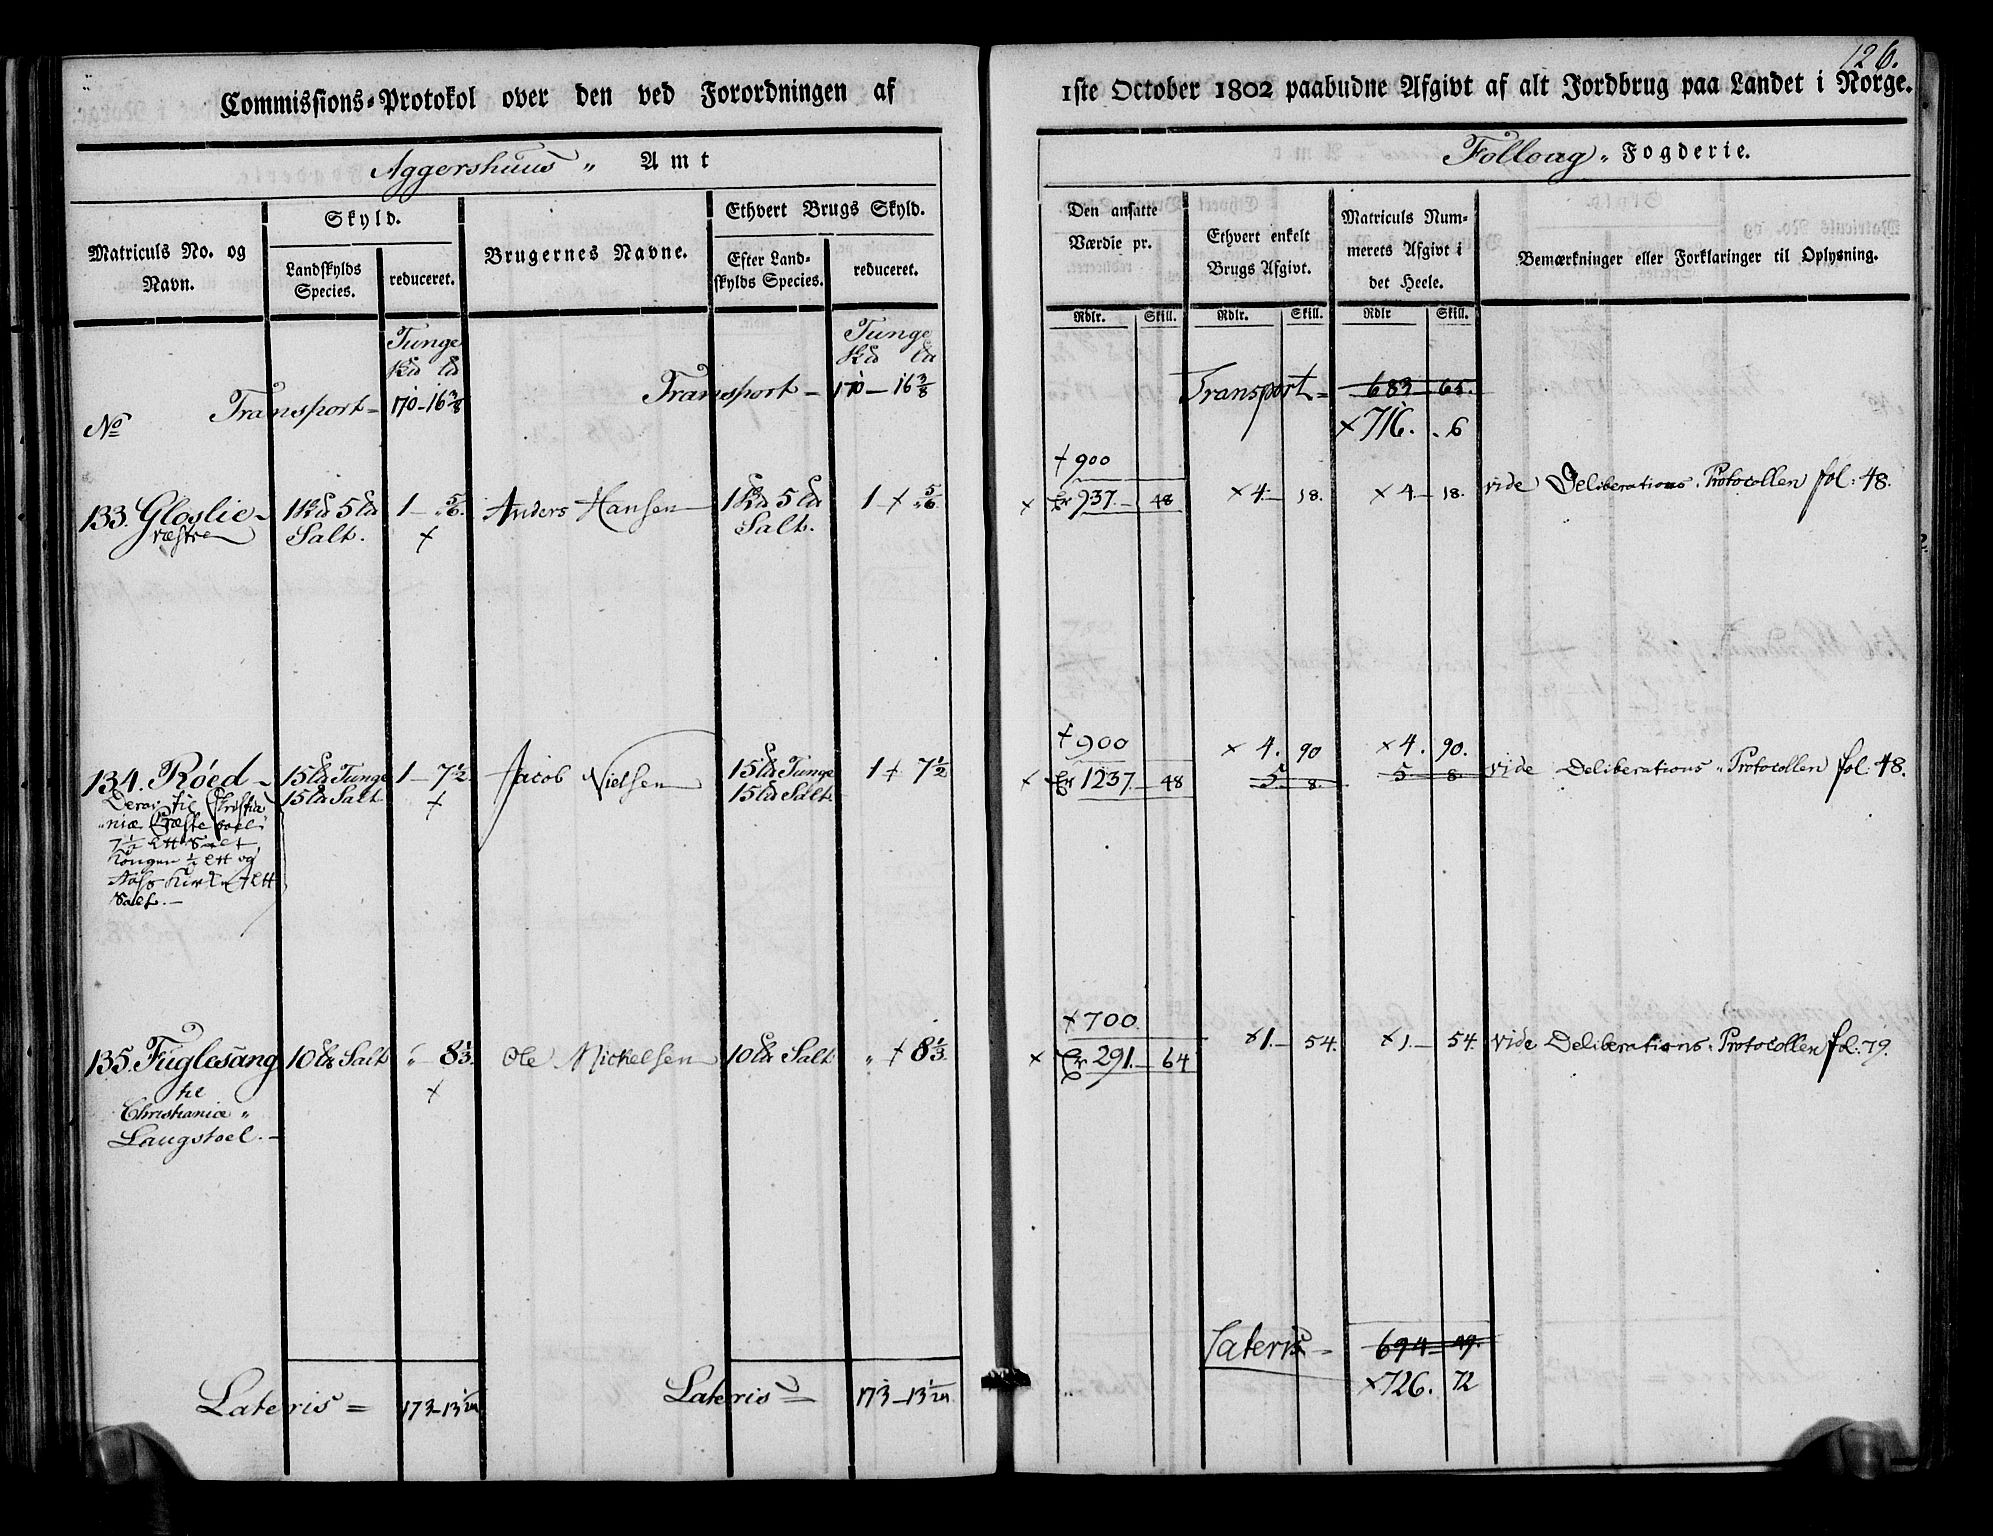 126.
Commissions-Protokol over den ved Forordningen af
1ste October 1802 paabudne Afgivt af alt Jordbrug paa Landet i Norge.
Aggershuus „ Amt
Folloug „ Fogderie.
Matriculs No. og Navn.
Skyld.
Landskylds Species.
reduceret.
Brugernes Navne.
Ethvert Brugs Skyld.
Efter Landskylds Species.
reduceret.
Den ansatte Værdie pr.
Ethvert enkelt Brugs Afgivt.
Matriculs Nummerets Afgivt i det Heele.
Bemærkninger eller Forklaringer til Oplysning.
Rdlr. Skill. Rdlr. Skill. Rdlr Skill.
Tunge
Tunge
No Transport - 170 - 16 3/8
Transport - 170 - 16 3/8
Transport - 683 - 65.
× 716. - 6
+ 900
133. Gloslie - 1 5 1 - „ 5/6 Anders Hansen 1 5 1 + „ 5/6 × Er 937. - 48 × 4 - 18. × 4 - 18. vide Deliberations Protocollen fol: 48.
væstre Salt. + Salt.
+ 900 × 4. 90 × 4. 90.
134. Röed - 15 Tunge 1 - 7 1/2 Jacob Nielsen 15 Tunge 1 + 7 1/2 × Er 1237. - 48 5. - 8. 5. - 8. vide Deliberations Protocollen fol. 48.
15 Salt + 15 Salt.
Deraf til Christia
niæ
7 1/2 Salt,
Kongen 1/2 og
Aass
Salt. -
+ 700.
135. Fuglesang 10 Salt „ - 8 1/3. Ole Nickelsen 10 Salt „ + 8 1/3. × Er 291. - 64 × 1. - 54. × 1. - 54. vide Deliberations Protocollen fol: 79.
til +
Christianiæ „
Laugstoel. -
Lateris = 173 - 13 1/24
Lateris = 173 - 13 1/24.
Lateris - 694 - 29.
× 726. 72